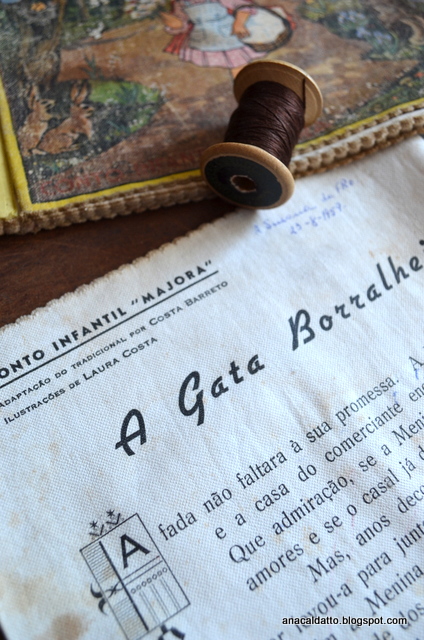 23-8-1957
ONTO INFANTIL "MAJORA"
ADAPTAÇÃO DO TRADICIONAL POR COSTA BARRETO
ILUSTRAÇÕES DE LAURA COSTA
A Gata Borralhei
A fada não faltara à sua promessa. A
e a casa do comerciante en
Que admiração, se a Meni
amores e se o casal já d
Mas, anos deco
levou-a para junt
a Menina
anacaldatto.blogspot.com